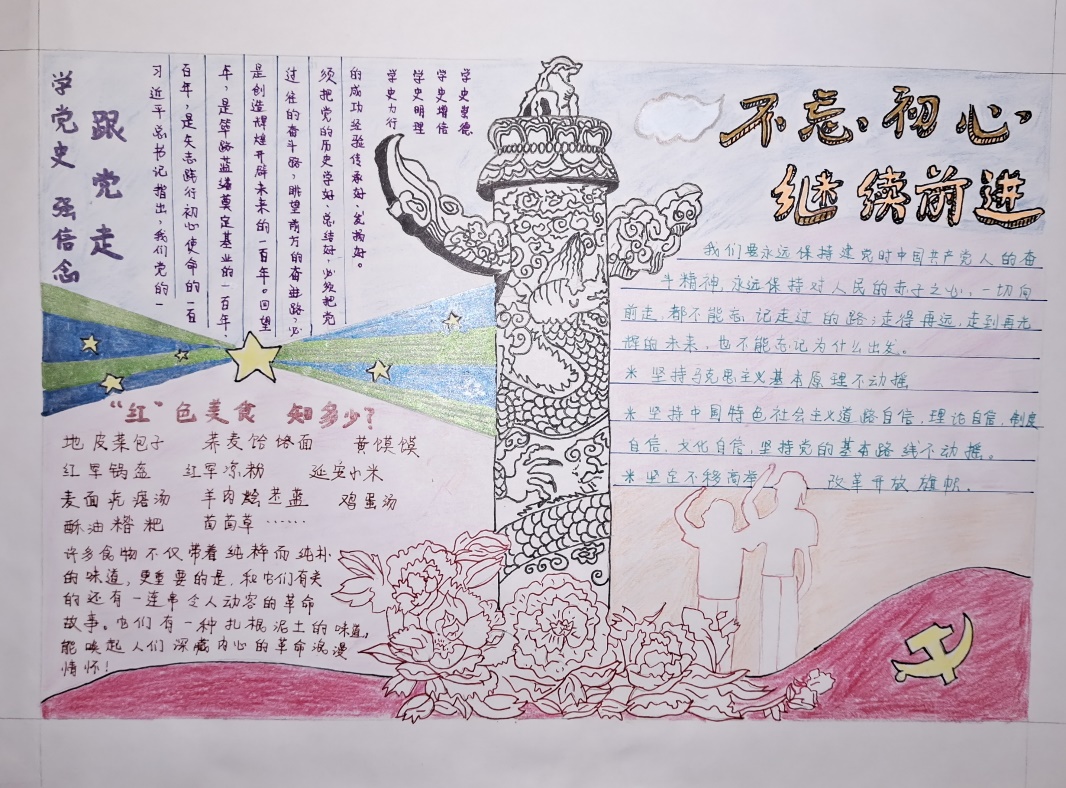 学党史 强信念
跟党走
习近平总书记指出,我们党的一
百年,是矢志践行初心使命的一百
年,是筚路蓝缕奠定基业的一百年
是创造辉煌开辟未来的一百年。回望
过往的奋斗路,眺望前方的奋进路,必
须把党的历史学好、总结好,必须把党
的成功经验传承好、发扬好。
学史力行
学史明理
学史增信
学史崇德
不忘初心
继续前进
我们要永远保持建党时中国共产党人的奋
斗精神,永远保持对人民的赤子之心,一切向
前走,都不能忘记走过的路;走得再远,走到再光
辉的未来,也不能忘记为什么出发。
※ 坚持马克思主义基本原理不动摇
※ 坚持中国特色社会主义道路自信,理论自信,制度
自信,文化自信,坚持党的基本路线不动摇。
※ 坚定不移高举 改革开放旗帜。
“红”色美食 知多少?
地皮菜包子 荞麦饸饹面 黄馍馍
红军锅盔 红军凉粉 延安小米
麦面疙瘩汤 羊肉烩苤蓝 鸡蛋汤
酥油 粑 茴茴草……
许多食物不仅带着纯粹而纯朴
的味道,更重要的是,和它们有关
的还有一连串令人动容的革命
故事。它们有一种扎根泥土的味道,
能唤起人们深藏内心的革命浪漫
情怀!